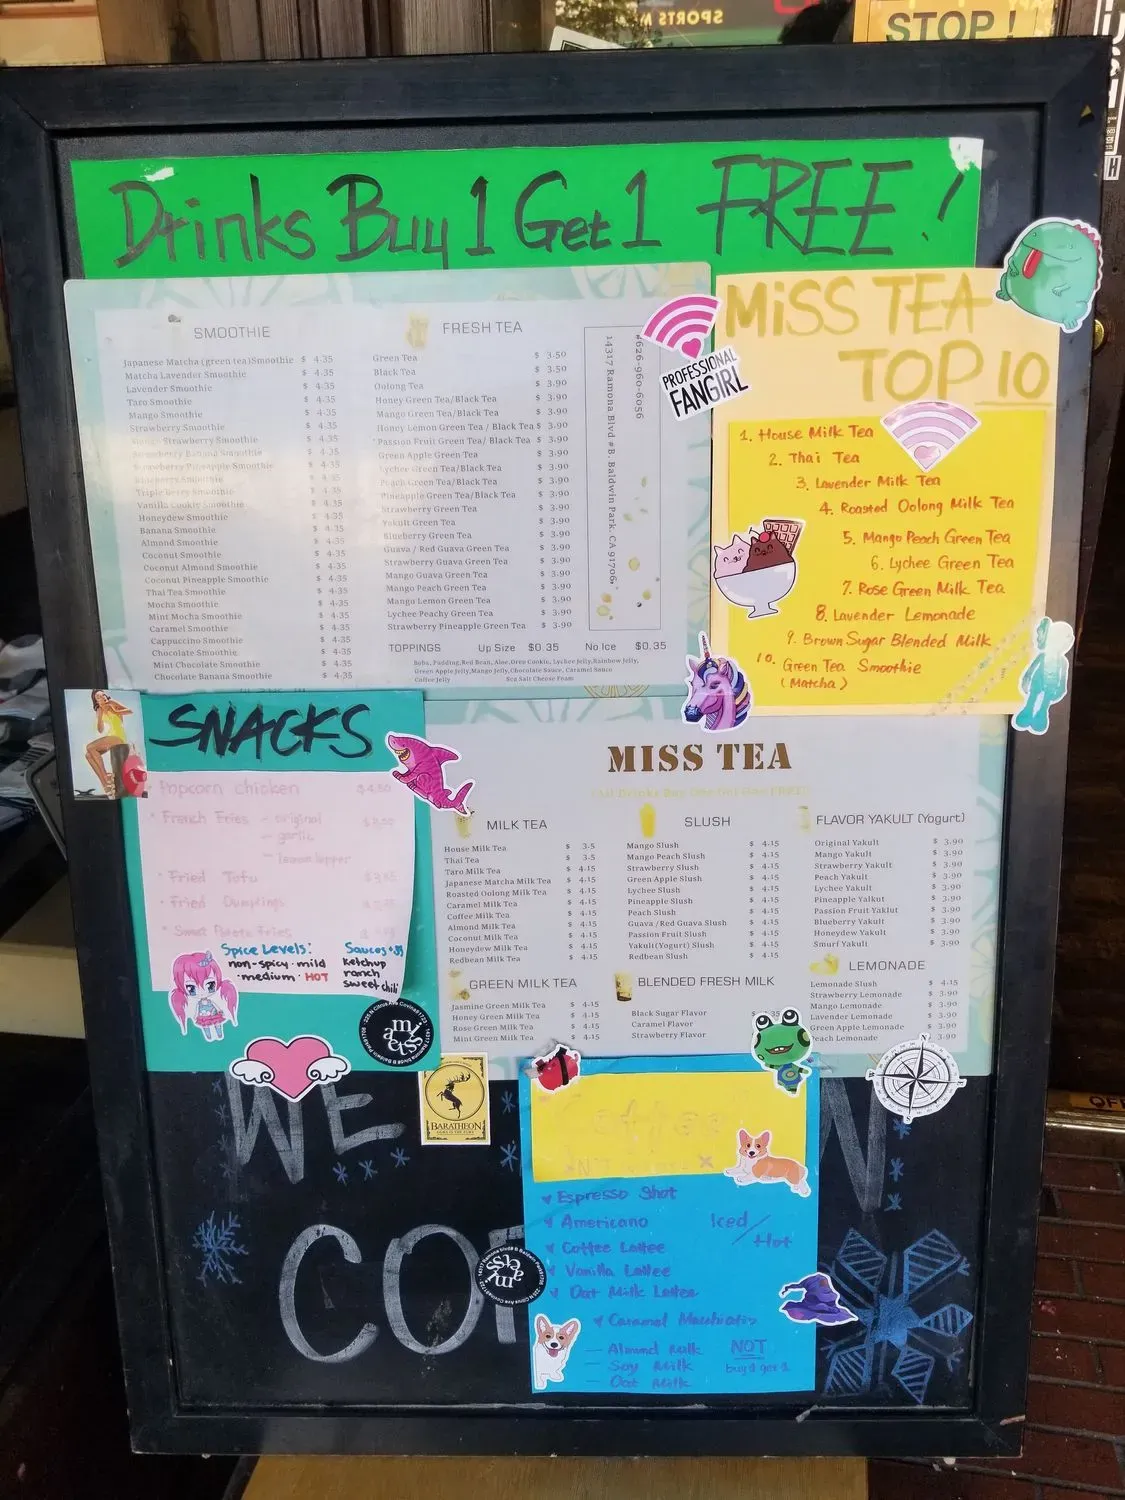 SPORTS M
STOP !
Drinks Buy 1 Get 1 FREE !
SMOOTHIE
Japanese Matcha (green tea)Smoothie $ 4.35
Matcha Lavender Smoothie $ 4.35
Lavender Smoothie $ 4.35
Taro Smoothie $ 4.35
Mango Smoothie $ 4.35
Strawberry Smoothie $ 4.35
Mango Strawberry Smoothie $ 4.35
Strawberry Banana Smoothie $ 4.35
Strawberry Pineapple Smoothie $ 4.35
Blueberry Smoothie $ 4.35
Triple Berry Smoothie $ 4.35
Vanilla Cookie Smoothie $ 4.35
Honeydew Smoothie $ 4.35
Banana Smoothie $ 4.35
Almond Smoothie $ 4.35
Coconut Smoothie $ 4.35
Coconut Almond Smoothie $ 4.35
Coconut Pineapple Smoothie $ 4.35
Thai Tea Smoothie $ 4.35
Mocha Smoothie $ 4.35
Mint Mocha Smoothie $ 4.35
Caramel Smoothie $ 4.35
Cappuccino Smoothie $ 4.35
Chocolate Smoothie $ 4.35
Mint Chocolate Smoothie $ 4.35
Chocolate Banana Smoothie $ 4.35
FRESH TEA
Green Tea $ 3.50
Black Tea $ 3.50
Oolong Tea $ 3.90
Honey Green Tea/Black Tea $ 3.90
Mango Green Tea/Black Tea $ 3.90
Honey Lemon Green Tea / Black Tea $ 3.90
Passion Fruit Green Tea/ Black Tea $ 3.90
Green Apple Green Tea $ 3.90
Lychee Green Tea/Black Tea $ 3.90
Peach Green Tea/Black Tea $ 3.90
Pineapple Green Tea/Black Tea $ 3.90
Strawberry Green Tea $ 3.90
Yakult Green Tea $ 3.90
Blueberry Green Tea $ 3.90
Guava / Red Guava Green Tea $ 3.90
Strawberry Guava Green Tea $ 3.90
Mango Guava Green Tea $ 3.90
Mango Peach Green Tea $ 3.90
Mango Lemon Green Tea $ 3.90
Lychee Peachy Green Tea $ 3.90
Strawberry Pineapple Green Tea $ 3.90
TOPPINGS Up Size $0.35 No Ice $0.35
Boba, Pudding,Red Bean, Aloe,Oreo Cookie, Lychee Jelly,Rainbow Jelly,
Green Apple Jelly,Mango Jelly,Chocolate Sauce, Caramel Sauce
Coffee Jelly Sea Salt Cheese Foam
626-960-6056
14317 Ramona Blvd #B. Baldwin Park, CA 91706
PROFESSIONAL
FANGIRL
MiSS TEA
TOP 10
1. House Milk Tea
2. Thai Tea
3. Lavender Milk Tea
4. Roasted Oolong Milk Tea
5. Mango Peach Green Tea
6. Lychee Green Tea
7. Rose Green Milk Tea
8. Lavender Lemonade
9. Brown Sugar Blended Milk
10. Green Tea Smoothie
(Matcha)
SNACKS
Popcorn chicken $4.50
French Fries - original
- garlic
- lemon pepper
Fried Tofu
Fried Dumplings
Sweet Potato Fries
Spice Levels:
non-spicy · mild
· medium · HOT
Sauces
ketchup
ranch
sweet chili
MISS TEA
All Drinks Buy One Get One FREE!
MILK TEA
House Milk Tea $ 3.5
Thai Tea $ 3.5
Taro Milk Tea $ 4.15
Japanese Matcha Milk Tea $ 4.15
Roasted Oolong Milk Tea $ 4.15
Caramel Milk Tea $ 4.15
Coffee Milk Tea $ 4.15
Almond Milk Tea $ 4.15
Coconut Milk Tea $ 4.15
Honeydew Milk Tea $ 4.15
Redbean Milk Tea $ 4.15
SLUSH
Mango Slush $ 4.15
Mango Peach Slush $ 4.15
Strawberry Slush $ 4.15
Green Apple Slush $ 4.15
Lychee Slush $ 4.15
Pineapple Slush $ 4.15
Peach Slush $ 4.15
Guava /Red Guava Slush $ 4.15
Passion Fruit Slush $ 4.15
Yakult(Yogurt) Slush $ 4.15
Redbean Slush $ 4.15
FLAVOR YAKULT (Yogurt)
Original Yakult $ 3.90
Mango Yakult $ 3.90
Strawberry Yakult $ 3.90
Peach Yakult $ 3.90
Lychee Yakult $ 3.90
Pineapple Yalkut $ 3.90
Passion Fruit Yaklut $ 3.90
Blueberry Yakult $ 3.90
Honeydew Yakult $ 3.90
Smurf Yakult $ 3.90
GREEN MILK TEA
Jasmine Green Milk Tea $ 4.15
Honey Green Milk Tea $ 4.15
Rose Green Milk Tea $ 4.15
Mint Green Milk Tea $ 4.15
BLENDED FRESH MILK
Black Sugar Flavor
Caramel Flavor
Strawberry Flavor
LEMONADE
Lemonade Slush $ 4.15
Strawberry Lemonade $ 3.90
Mango Lemonade $ 3.90
Lavender Lemonade $ 3.90
Green Apple Lemonade $ 3.90
Peach Lemonade
BARATHEON
WE
N
CO
Coffee
Espresso Shot
Americano
Coffee Lattee
Vanilla Lattee
Oat Milk Lattee
Caramel Macchiato
Iced/Hot
- Almond Milk
- Soy Milk
- Oat Milk
NOT
buy 1 get 1